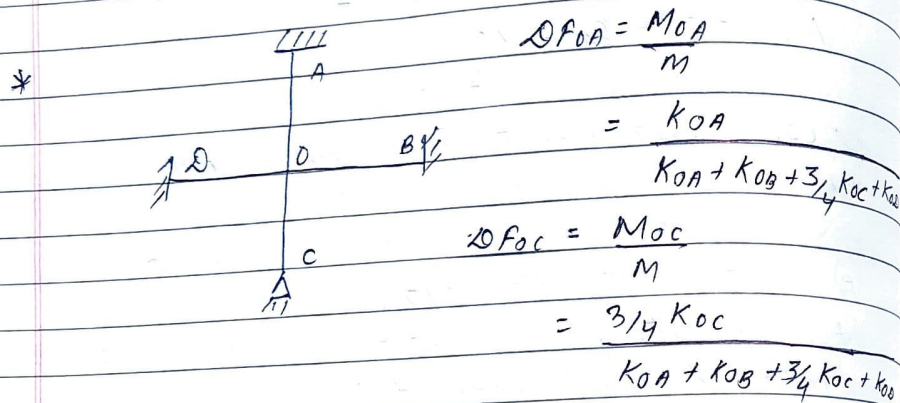 *
A
D
O
B
C
DF_OA = M_OA / M
= K_OA / K_OA + K_OB + 3/4 K_OC + K_OD
DF_OC = M_OC / M
= 3/4 K_OC / K_OA + K_OB + 3/4 K_OC + K_OD